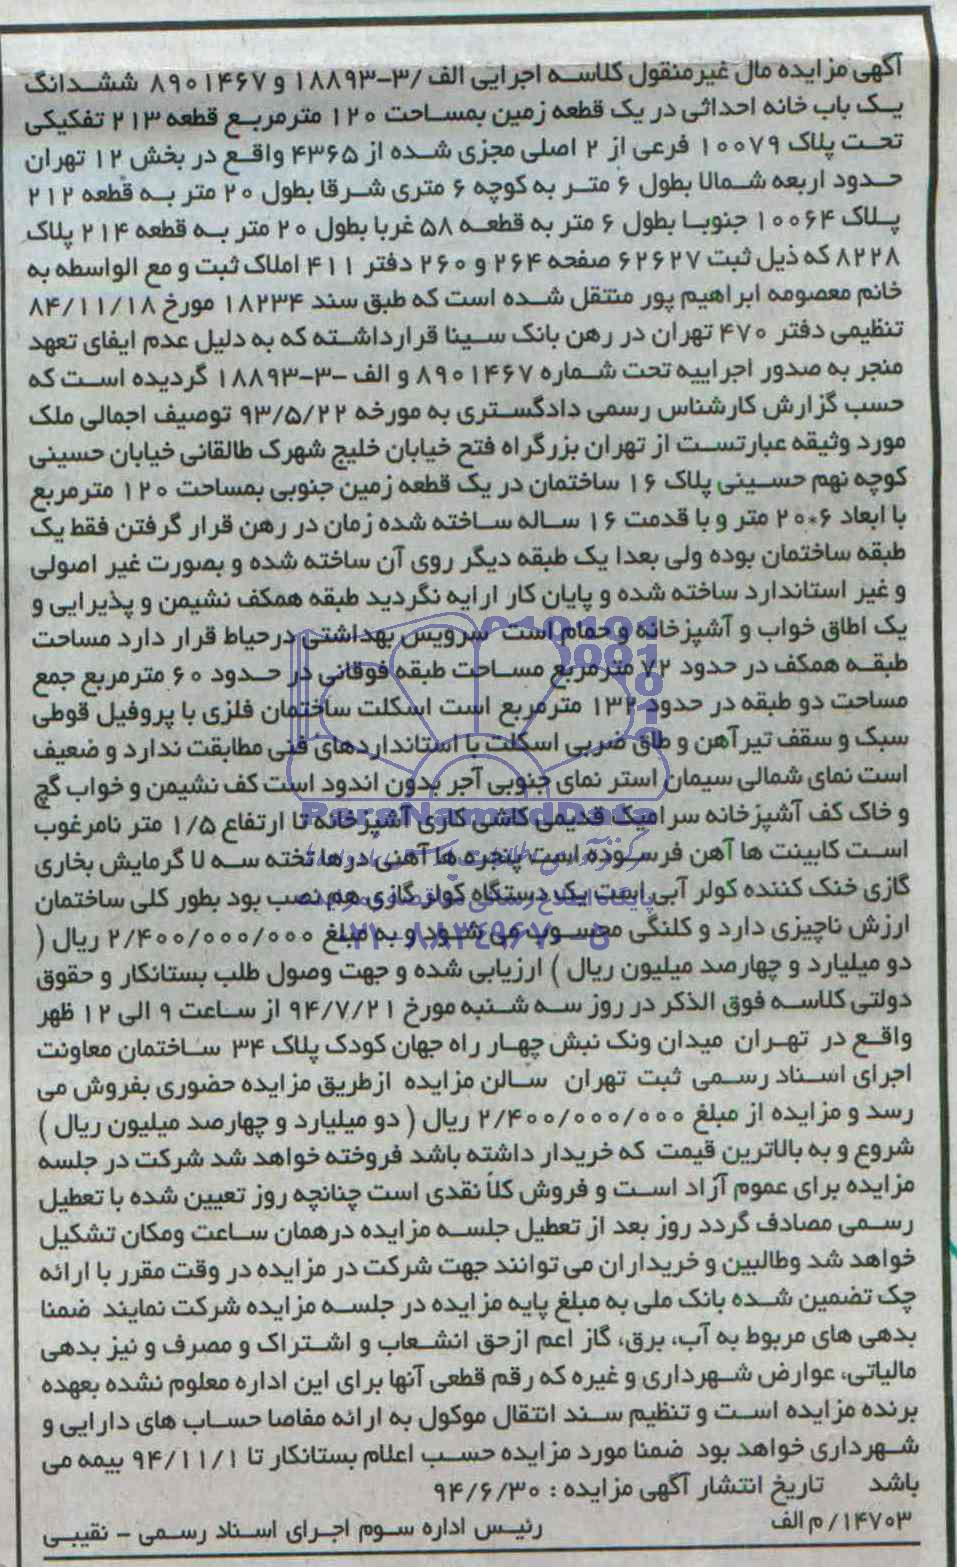 آگهی مزایده مال غیرمنقول کلاسه اجرایی الف /۳-۱۸۸۹۳ و ۸۹۰۱۴۶۷ ششدانگ
یک باب خانه احداثی در یک قطعه زمین بمساحت ۱۲۰ مترمربع قطعه ۲۱۳ تفکیکی
تحت پلاک ۱۰۰۷۹ فرعی از ۲ اصلی مجزی شده از ۴۳۶۵ واقع در بخش ۱۲ تهران
حدود اربعه شمالا بطول ۶ متر به کوچه ۶ متری شرقا بطول ۲۰ متر به قطعه ۲۱۲
پلاک ۱۰۰۶۴ جنوبا بطول ۶ متر به قطعه ۵۸ غربا بطول ۲۰ متر به قطعه ۲۱۴ پلاک
۸۲۲۸ که ذیل ثبت ۶۲۶۲۷ صفحه ۲۶۴ و ۲۶۰ دفتر ۴۱۱ املاک ثبت و مع الواسطه به
خانم معصومه ابراهیم پور منتقل شده است که طبق سند ۱۸۲۳۴ مورخ ۸۴/۱۱/۱۸
تنظیمی دفتر ۴۷۰ تهران در رهن بانک سینا قرارداشته که به دلیل عدم ایفای تعهد
منجر به صدور اجراییه تحت شماره ۸۹۰۱۴۶۷ و الف -۳-۱۸۸۹۳ گردیده است که
حسب گزارش کارشناس رسمی دادگستری به مورخه ۹۳/۵/۲۲ توصیف اجمالی ملک
مورد وثیقه عبارتست از تهران بزرگراه فتح خیابان خلیج شهرک طالقانی خیابان حسینی
کوچه نهم حسینی پلاک ۱۶ ساختمان در یک قطعه زمین جنوبی بمساحت ۱۲۰ مترمربع
با ابعاد ۶*۲۰ متر و با قدمت ۱۶ ساله ساخته شده زمان در رهن قرار گرفتن فقط یک
طبقه ساختمان بوده ولی بعدا یک طبقه دیگر روی آن ساخته شده و بصورت غیر اصولی
و غیر استاندارد ساخته شده و پایان کار ارایه نگردید طبقه همکف نشیمن و پذیرایی و
یک اطاق خواب و آشپزخانه و حمام است سرویس بهداشتی درحیاط قرار دارد مساحت
طبقه همکف در حدود ۷۲ مترمربع مساحت طبقه فوقانی در حدود ۶۰ مترمربع جمع
مساحت دو طبقه در حدود ۱۳۲ مترمربع است اسکلت ساختمان فلزی با پروفیل قوطی
سبک و سقف تیرآهن و طاق ضربی اسکلت با استانداردهای فنی مطابقت ندارد و ضعیف
است نمای شمالی سیمان استر نمای جنوبی آجر بدون اندود است کف نشیمن و خواب گچ
و خاک کف آشپزخانه سرامیک قدیمی کاشی کاری آشپزخانه تا ارتفاع ۱/۵ متر نامرغوب
است کابینت ها آهن فرسوده است پنجره ها آهنی درها تخته سه لا گرمایش بخاری
گازی خنک کننده کولر آبی است یک دستگاه کولر گازی هم نصب بود بطور کلی ساختمان
ارزش ناچیزی دارد و کلنگی محسوب می شود و به مبلغ ۲/۴۰۰/۰۰۰/۰۰۰ ریال (
دو میلیارد و چهارصد میلیون ریال ) ارزیابی شده و جهت وصول طلب بستانکار و حقوق
دولتی کلاسه فوق الذکر در روز سه شنبه مورخ ۹۴/۷/۲۱ از ساعت ۹ الی ۱۲ ظهر
واقع در تهران میدان ونک نبش چهار راه جهان کودک پلاک ۳۴ ساختمان معاونت
اجرای اسناد رسمی ثبت تهران سالن مزایده ازطریق مزایده حضوری بفروش می
رسد و مزایده از مبلغ ۲/۴۰۰/۰۰۰/۰۰۰ ریال ( دو میلیارد و چهارصد میلیون ریال )
شروع و به بالاترین قیمت که خریدار داشته باشد فروخته خواهد شد شرکت در جلسه
مزایده برای عموم آزاد است و فروش کلا نقدی است چنانچه روز تعیین شده با تعطیل
رسمی مصادف گردد روز بعد از تعطیل جلسه مزایده درهمان ساعت ومکان تشکیل
خواهد شد وطالبین و خریداران می توانند جهت شرکت در مزایده در وقت مقرر با ارائه
چک تضمین شده بانک ملی به مبلغ پایه مزایده در جلسه مزایده شرکت نمایند ضمنا
بدهی های مربوط به آب، برق، گاز اعم ازحق انشعاب و اشتراک و مصرف و نیز بدهی
مالیاتی، عوارض شهرداری و غیره که رقم قطعی آنها برای این اداره معلوم نشده بعهده
برنده مزایده است و تنظیم سند انتقال موکول به ارائه مفاصا حساب های دارایی و
شهرداری خواهد بود ضمنا مورد مزایده حسب اعلام بستانکار تا ۹۴/۱۱/۱ بیمه می
باشد تاریخ انتشار آگهی مزایده : ۹۴/۶/۳۰
۱۴۷۰۳/ م الف رئیس اداره سوم اجرای اسناد رسمی - نقیبی
ParaNamadData
۰۲۱-۸۸۳٤۹٦۷۰-۵